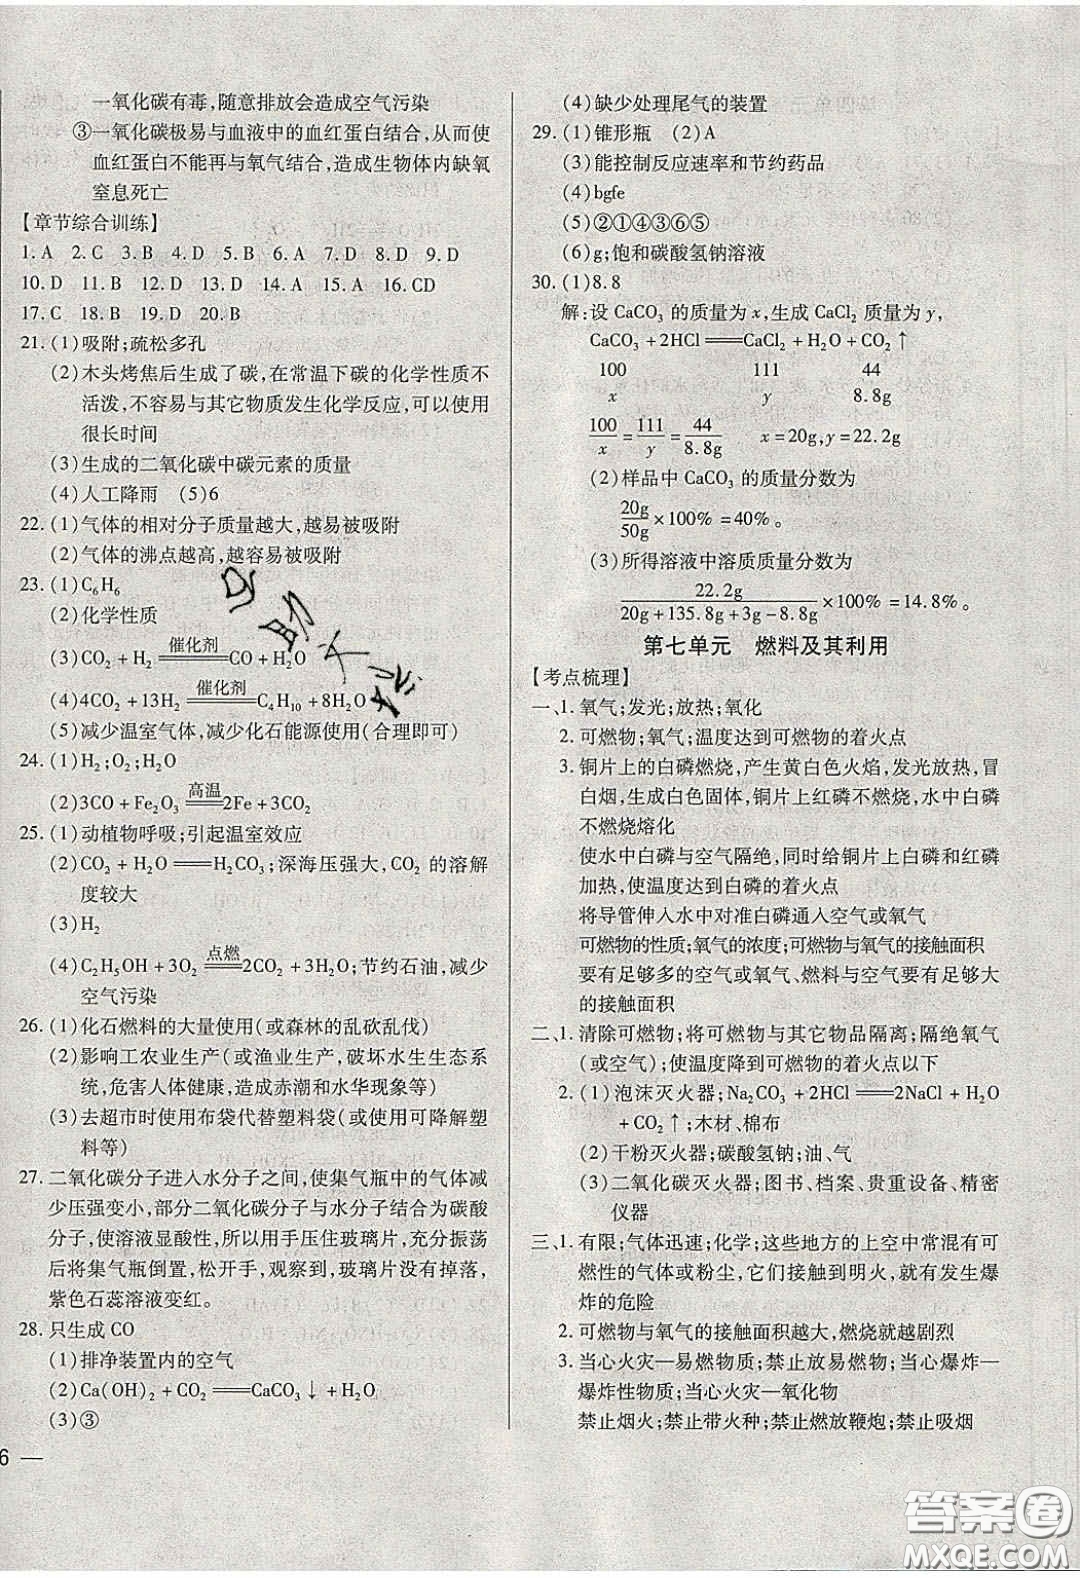 一氧化碳有毒,随意排放会造成空气污染
③一氧化碳极易与血液中的血红蛋白结合,从而使
血红蛋白不能再与氧气结合,造成生物体内缺氧
窒息死亡
【章节综合训练】
1. A 2. C 3. B 4. D 5. B 6. A 7. D 8. D 9. D
10. D 11. B 12. D 13. D 14. A 15. A 16. CD
17. C 18. B 19. D 20. B
21. (1)吸附;疏松多孔
(2)木头烤焦后生成了碳,在常温下碳的化学性质不
活泼,不容易与其它物质发生化学反应,可以使用
很长时间
(3)生成的二氧化碳中碳元素的质量
(4)人工降雨 (5)6
22. (1)气体的相对分子质量越大,越易被吸附
(2)气体的沸点越高,越容易被吸附
23. (1)C₆H₆
(2)化学性质
(3)CO₂ + H₂ ══催化剂══ CO + H₂O
(4)4CO₂ + 13H₂ ══催化剂══ C₄H₁₀ + 8H₂O
(5)减少温室气体,减少化石能源使用(合理即可)
24. (1)H₂;O₂;H₂O
(2)3CO + Fe₂O₃ ══高温══ 2Fe + 3CO₂
25. (1)动植物呼吸;引起温室效应
(2)CO₂ + H₂O ══ H₂CO₃;深海压强大,CO₂ 的溶解
度较大
(3)H₂
(4)C₂H₅OH + 3O₂ ══点燃══ 2CO₂ + 3H₂O;节约石油,减少
空气污染
26. (1)化石燃料的大量使用(或森林的乱砍乱伐)
(2)影响工农业生产(或渔业生产,破坏水生生态系
统,危害人体健康,造成赤潮和水华现象等)
(3)去超市时使用布袋代替塑料袋(或使用可降解塑
料等)
27. 二氧化碳分子进入水分子之间,使集气瓶中的气体减
少压强变小,部分二氧化碳分子与水分子结合为碳酸
分子,使溶液显酸性,所以用手压住玻璃片,充分振荡
后将集气瓶倒置,松开手,观察到,玻璃片不掉下来,
紫色石蕊溶液变红。
28. 只生成 CO
(1)排净装置内的空气
(2)Ca(OH)₂ + CO₂ ══ CaCO₃↓ + H₂O
(3)③
6 —
(4)缺少处理尾气的装置
29. (1)锥形瓶 (2)A
(3)能控制反应速率和节约药品
(4)bgfe
(5)②①④③⑥⑤
(6)g;饱和碳酸氢钠溶液
30. (1)8.8
解:设 CaCO₃ 的质量为 x,生成 CaCl₂ 质量为 y,
CaCO₃ + 2HCl ══ CaCl₂ + H₂O + CO₂↑
100 111 44
x y 8.8g
100/x = 111/y = 44/8.8g x = 20g,y = 22.2g
(2)样品中 CaCO₃ 的质量分数为
20g/50g × 100% = 40%。
(3)所得溶液中溶质质量分数为
22.2g/(20g + 135.8g + 3g - 8.8g) × 100% = 14.8%。
第七单元 燃料及其利用
【考点梳理】
一、1. 氧气;发光;放热;氧化
2. 可燃物;氧气;温度达到可燃物的着火点
3. 铜片上的白磷燃烧,产生黄白色火焰,发光放热,冒
白烟,生成白色固体,铜片上红磷不燃烧,水中白磷
不燃烧熔化
使水中白磷与空气隔绝,同时给铜片上白磷和红磷
加热,使温度达到白磷的着火点
将导管伸入水中对准白磷通入空气或氧气
可燃物的性质;氧气的浓度;可燃物与氧气的接触面积
要有足够多的空气或氧气、燃料与空气要有足够大
的接触面积
二、1. 清除可燃物;将可燃物与其它物品隔离;隔绝氧气
(或空气);使温度降到可燃物的着火点以下
2. (1)泡沫灭火器;Na₂CO₃ + 2HCl ══ 2NaCl + H₂O
+ CO₂↑;木材、棉布
(2)干粉灭火器;碳酸氢钠;油、气
(3)二氧化碳灭火器;图书、档案、贵重设备、精密
仪器
三、1. 有限;气体迅速;化学;这些地方的上空中常混有可
燃性的气体或粉尘,它们接触到明火,就有发生爆
炸的危险
2. 可燃物与氧气的接触面积越大,燃烧就越剧烈
3. 当心火灾—易燃物质;禁止放易燃物;当心爆炸—
爆炸性物质;当心火灾—氧化物
禁止烟火;禁止带火种;禁止燃放鞭炮;禁止吸烟
答案圈
MXQE.COM